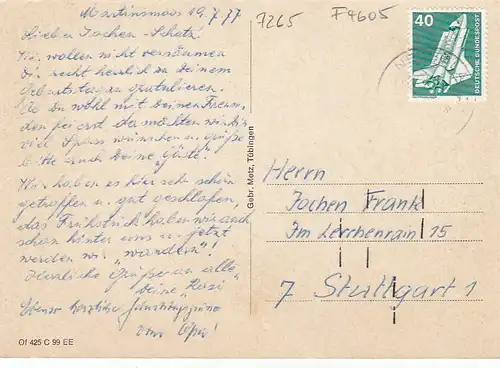 Martinsmoos 19.7.77
7265
F4605
40
DEUTSCHE BUNDESPOST
Lieber Jochen-Schatz!
Wir wollen nicht versäumen
Dir recht herzlich zu Deinem
Geburtstag zu gratulieren.
Da Du wohl mit Deinen Freun
den feierst da möchten wir Dir
viel Spass wünschen u. grüße
bitte auch Deine Gäste!
Wir haben es hier sehr schön
getroffen u. gut geschlafen,
das Frühstück haben wir auch
schon hinter uns u. jetzt
werden wir "wandern"!
Herzliche Grüße an alle,
Deine "Rosi"
Ebenso herzliche
vom Opa!
Gebr. Metz, Tübingen
Herrn
Jochen Frank
Im Lerchenrain 15
7 Stuttgart 1
Of 425 C 99 EE